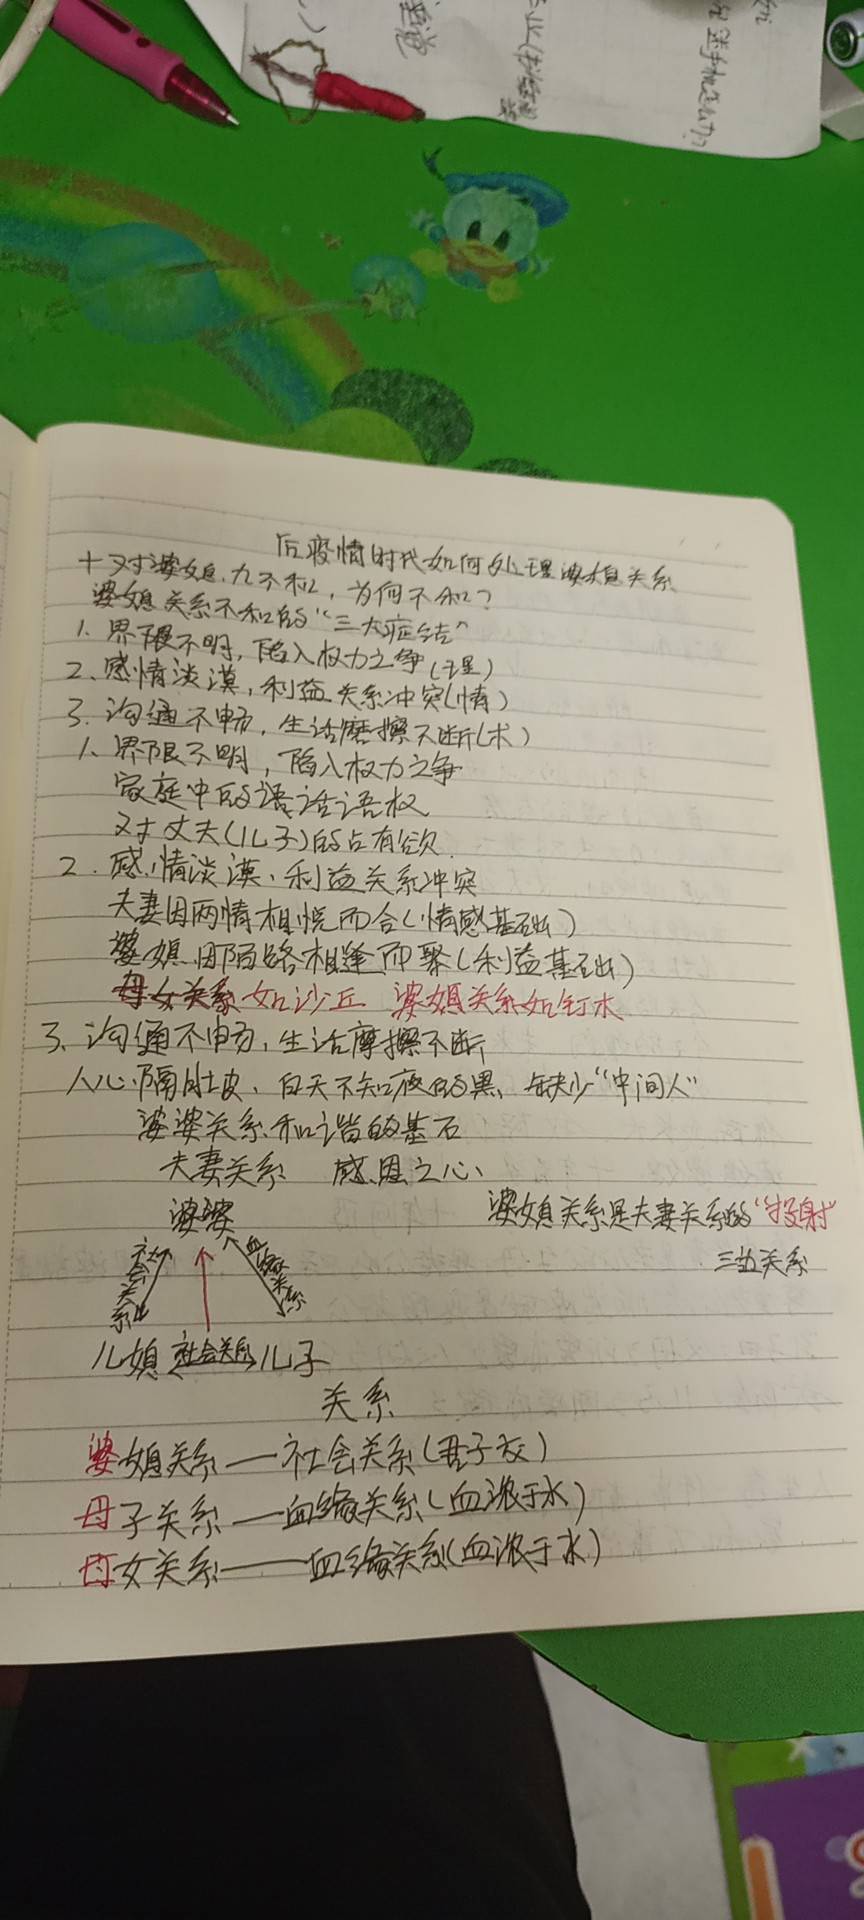 后疫情时代如何处理婆媳关系
十对婆媳,九不和,为何不和?
婆媳关系不和的“三大症结”
1、界限不明,陷入权力之争(理)
2、感情淡漠,利益关系冲突(情)
3、沟通不畅,生活磨擦不断(术)
1、界限不明,陷入权力之争
家庭中的语话语权
对丈夫(儿子)的占有欲
2.感情淡漠、利益关系冲突
夫妻因两情相悦而合(情感基础)
婆媳因陌路相逢而聚(利益基础)
母女关系如沙丘 婆媳关系如钉木
3、沟通不畅,生活摩擦不断
人心隔肚皮、白天不知夜的黑、缺少“中间人”
婆婆关系和谐的基石
夫妻关系 感恩之心
婆婆 婆媳关系是夫妻关系的“投射”
社会关系 血缘关系 三边关系
儿媳 社会关系 儿子
关系
婆媳关系—社会关系(君子交)
母子关系—血缘关系(血浓于水)
母女关系——血缘关系(血浓于水)